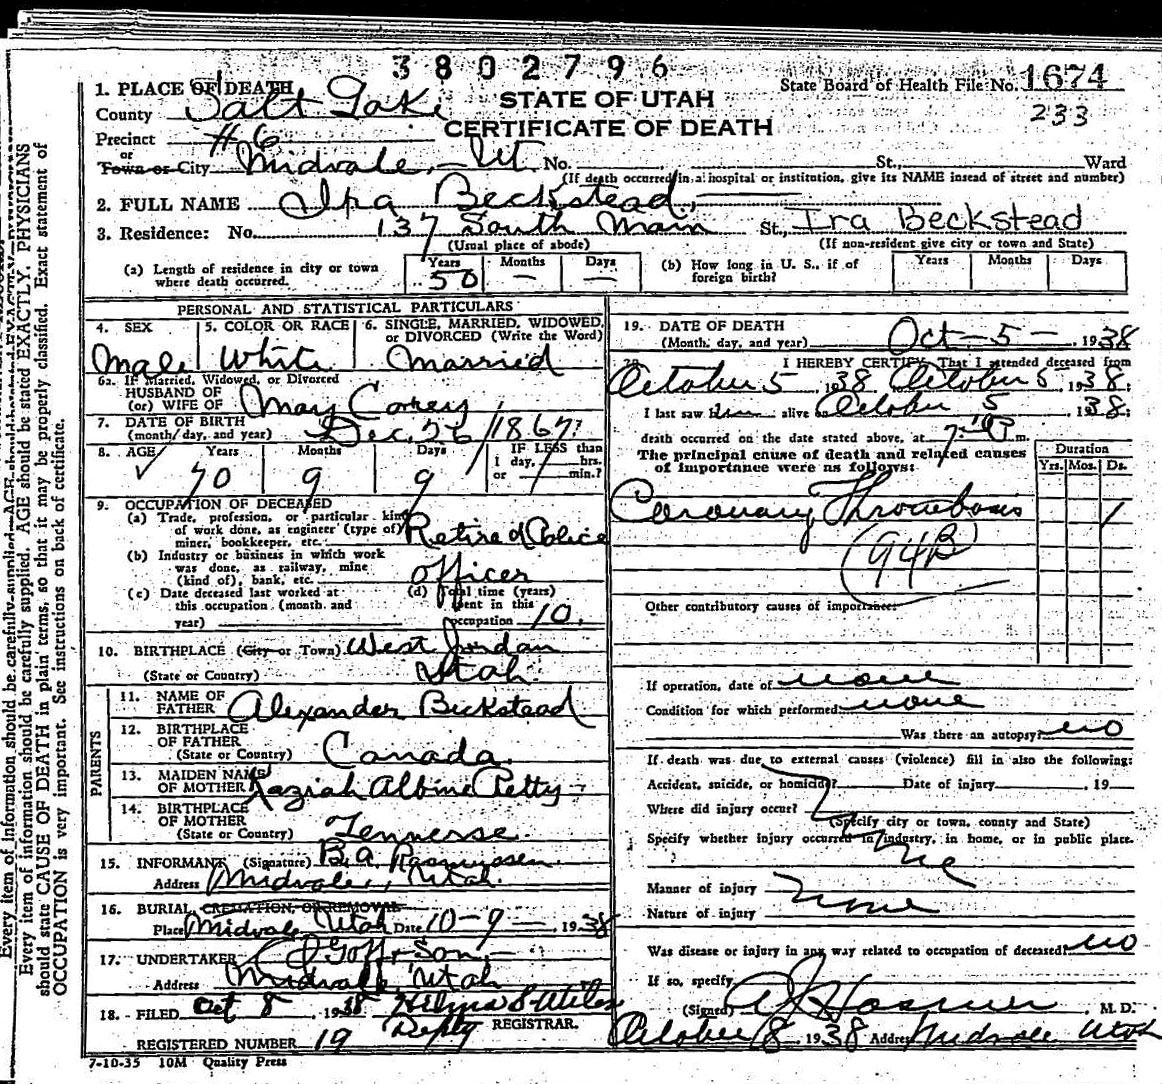 3802796
1. PLACE OF DEATH
State Board of Health File No. 1674
STATE OF UTAH
233
County Salt Lake
CERTIFICATE OF DEATH
Precinct #6
or
Town or City Midvale, - Ut No. St., Ward
(If death occurred in a hospital or institution, give its NAME insead of street and number)
2. FULL NAME Ira Beckstead,
3. Residence: No. 137 South Main St., Ira Beckstead
(Usual place of abode) (If non-resident give city or town and State)
(a) Length of residence in city or town where death occurred. Years 50 Months — Days —
(b) How long in U. S., if of foreign birth? Years Months Days
PERSONAL AND STATISTICAL PARTICULARS
4. SEX 5. COLOR OR RACE 6. SINGLE, MARRIED, WIDOWED, or DIVORCED (Write the Word)
Male White Married
6a. If Married, Widowed, or Divorced
HUSBAND OF
(or) WIFE OF May
7. DATE OF BIRTH
(month/day, and year) Dec. 26/1867
8. AGE Years Months Days IF LESS than
1 day, hrs.
or min.?
70 9 9
9. OCCUPATION OF DECEASED
(a) Trade, profession, or particular kind
of work done, as engineer (type of)
miner, bookkeeper, etc. Retired Police
(b) Industry or business in which work
was done, as railway, mine
(kind of), bank, etc. officer
(c) Date deceased last worked at
this occupation (month and
year)
(d) Total time (years)
spent in this
occupation 10.
10. BIRTHPLACE (City or Town) West Jordan
(State or Country) Utah.
PARENTS
11. NAME OF
FATHER Alexander Beckstead
12. BIRTHPLACE
OF FATHER
(State or Country) Canada.
13. MAIDEN NAME
OF MOTHER Kaziah Albine Petty
14. BIRTHPLACE
OF MOTHER
(State or Country) Tennesse.
15. INFORMANT (Signature) B. A. Rasmussen
Address Midvale, Utah.
16. BURIAL, CREMATION, OR REMOVAL
Place Midvale Utah Date 10-9 — , 1938
17. UNDERTAKER Goff & Son,
Address Midvale, Utah
18. FILED Oct 8, 1938
Deputy REGISTRAR.
REGISTERED NUMBER 19
7-10-35 10M Quality Press
19. DATE OF DEATH
(Month, day, and year) Oct - 5 - , 1938
20. I HEREBY CERTIFY, That I attended deceased from
October 5 1938, October 5 1938;
I last saw him alive on October 5 1938;
death occurred on the date stated above, at m.
The principal cause of death and related causes
of importance were as follows:
Duration
Yrs. Mos. Ds.
Coronary Thrombosis 1
(94B)
Other contributory causes of importance:
If operation, date of none
Condition for which performed none
Was there an autopsy? no
If death was due to external causes (violence) fill in also the following:
Accident, suicide, or homicide? Date of injury , 19
Where did injury occur?
(Specify city or town, county and State)
Specify whether injury occurred in industry, in home, or in public place.
Manner of injury
Nature of injury none
Was disease or injury in any way related to occupation of deceased? no
If so, specify
(Signed) , M. D.
October 8 1938 Address Midvale Utah
Every item of information should be carefully supplied. AGE should be stated EXACTLY. PHYSICIANS
should state CAUSE OF DEATH in plain terms, so that it may be properly classified. Exact statement of
OCCUPATION is very important. See instructions on back of certificate.